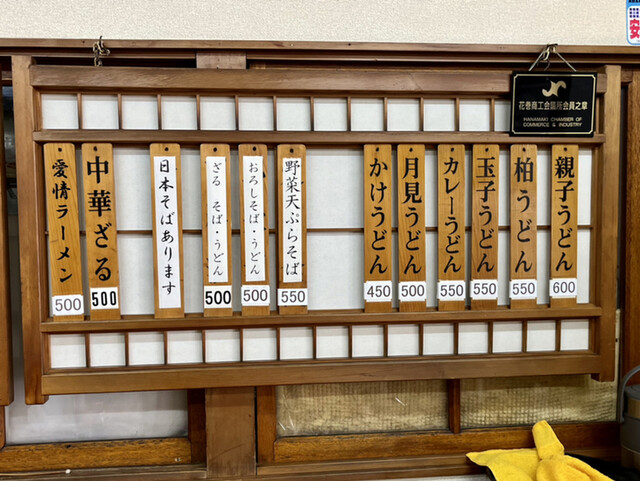 親子うどん
600
柏うどん
550
玉子うどん
550
カレーうどん
550
月見うどん
500
かけうどん
450
野菜天ぷらそば
550
おろしそば・うどん
500
ざる そば・うどん
500
日本そばあります
中華ざる
500
愛情ラーメン
500
花巻商工会議所会員之章
HANAMAKI CHAMBER OF
COMMERCE & INDUSTRY
安